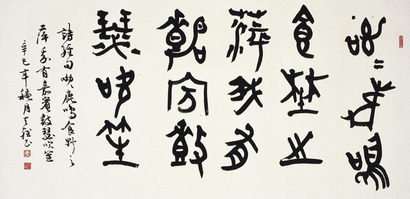 呦〻鹿鳴
食埜之
苹我有
嘉賓鼓
瑟吹笙
詩經句呦〻鹿鳴食野之
苹我有嘉賓鼓瑟吹笙
辛巳年穐月